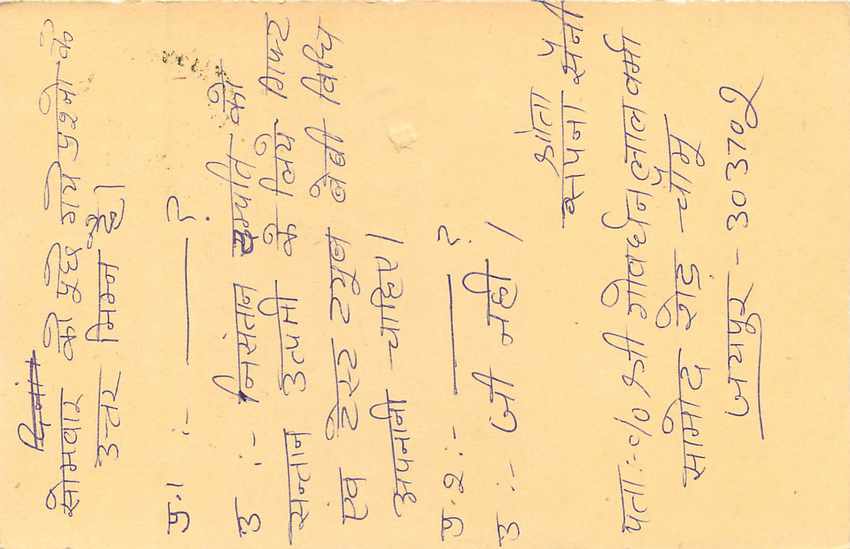 सोमवार को पुछे गये प्रश्न के
उत्तर निम्न है।
प्र.1 :- ——— ?
उ :- निसंतान दम्पति को
सन्तान उत्पती के लिये गिफ्ट
एंव टेस्ट ट्युब बेबी विधि
अपनानी चाहिए।
प्र.2 :- ——— ?
उ :- जी नही।
श्रोता
सपना सैनी
पता :- c/o श्री गोवर्धन लाल वर्मा
सामोद रोड चौमु
जयपुर - 303702